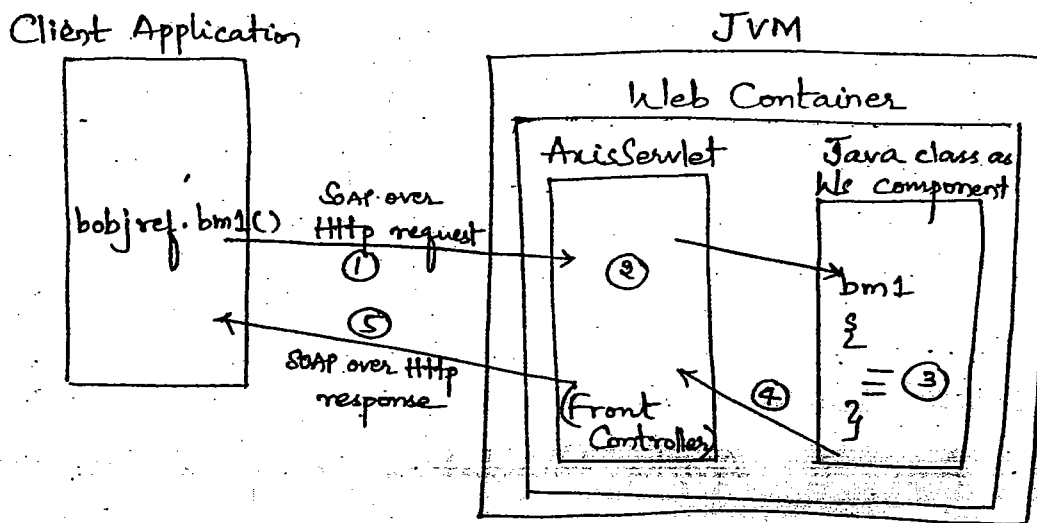 Client Application
JVM
Web Container
AxisServlet
Java class as
Ws component
bobjref.bm1()
SOAP over
HTTp request
①
②
bm1
{
③
}
④
⑤
SOAP over HTTp
response
(Front
Controller)